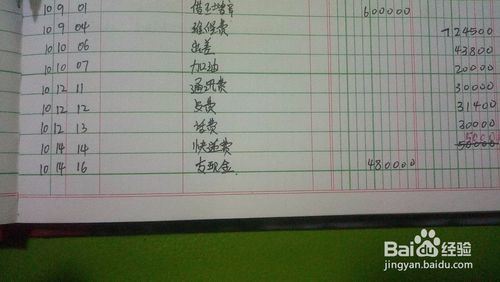 10 9 01 600000
10 9 04 维保费 124500
10 10 06 出差 43800
10 10 07 加油 20000
10 12 11 通讯费 30000
10 12 12 费 31400
10 12 13 话费 30000
10 14 14 快递费 5000 50000
10 14 16 现金 480000
Baidu 经验
jingyan.baidu.com